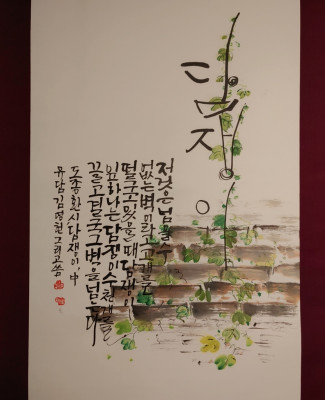 담쟁이
저것은 넘을 수
없는 벽이라고 고개를
떨구고 있을 때 담쟁이
잎 하나는 담쟁이 수천 개를
끌고 결국 그 벽을 넘는다
도종환 시 담쟁이 中
유담 그리고 씀